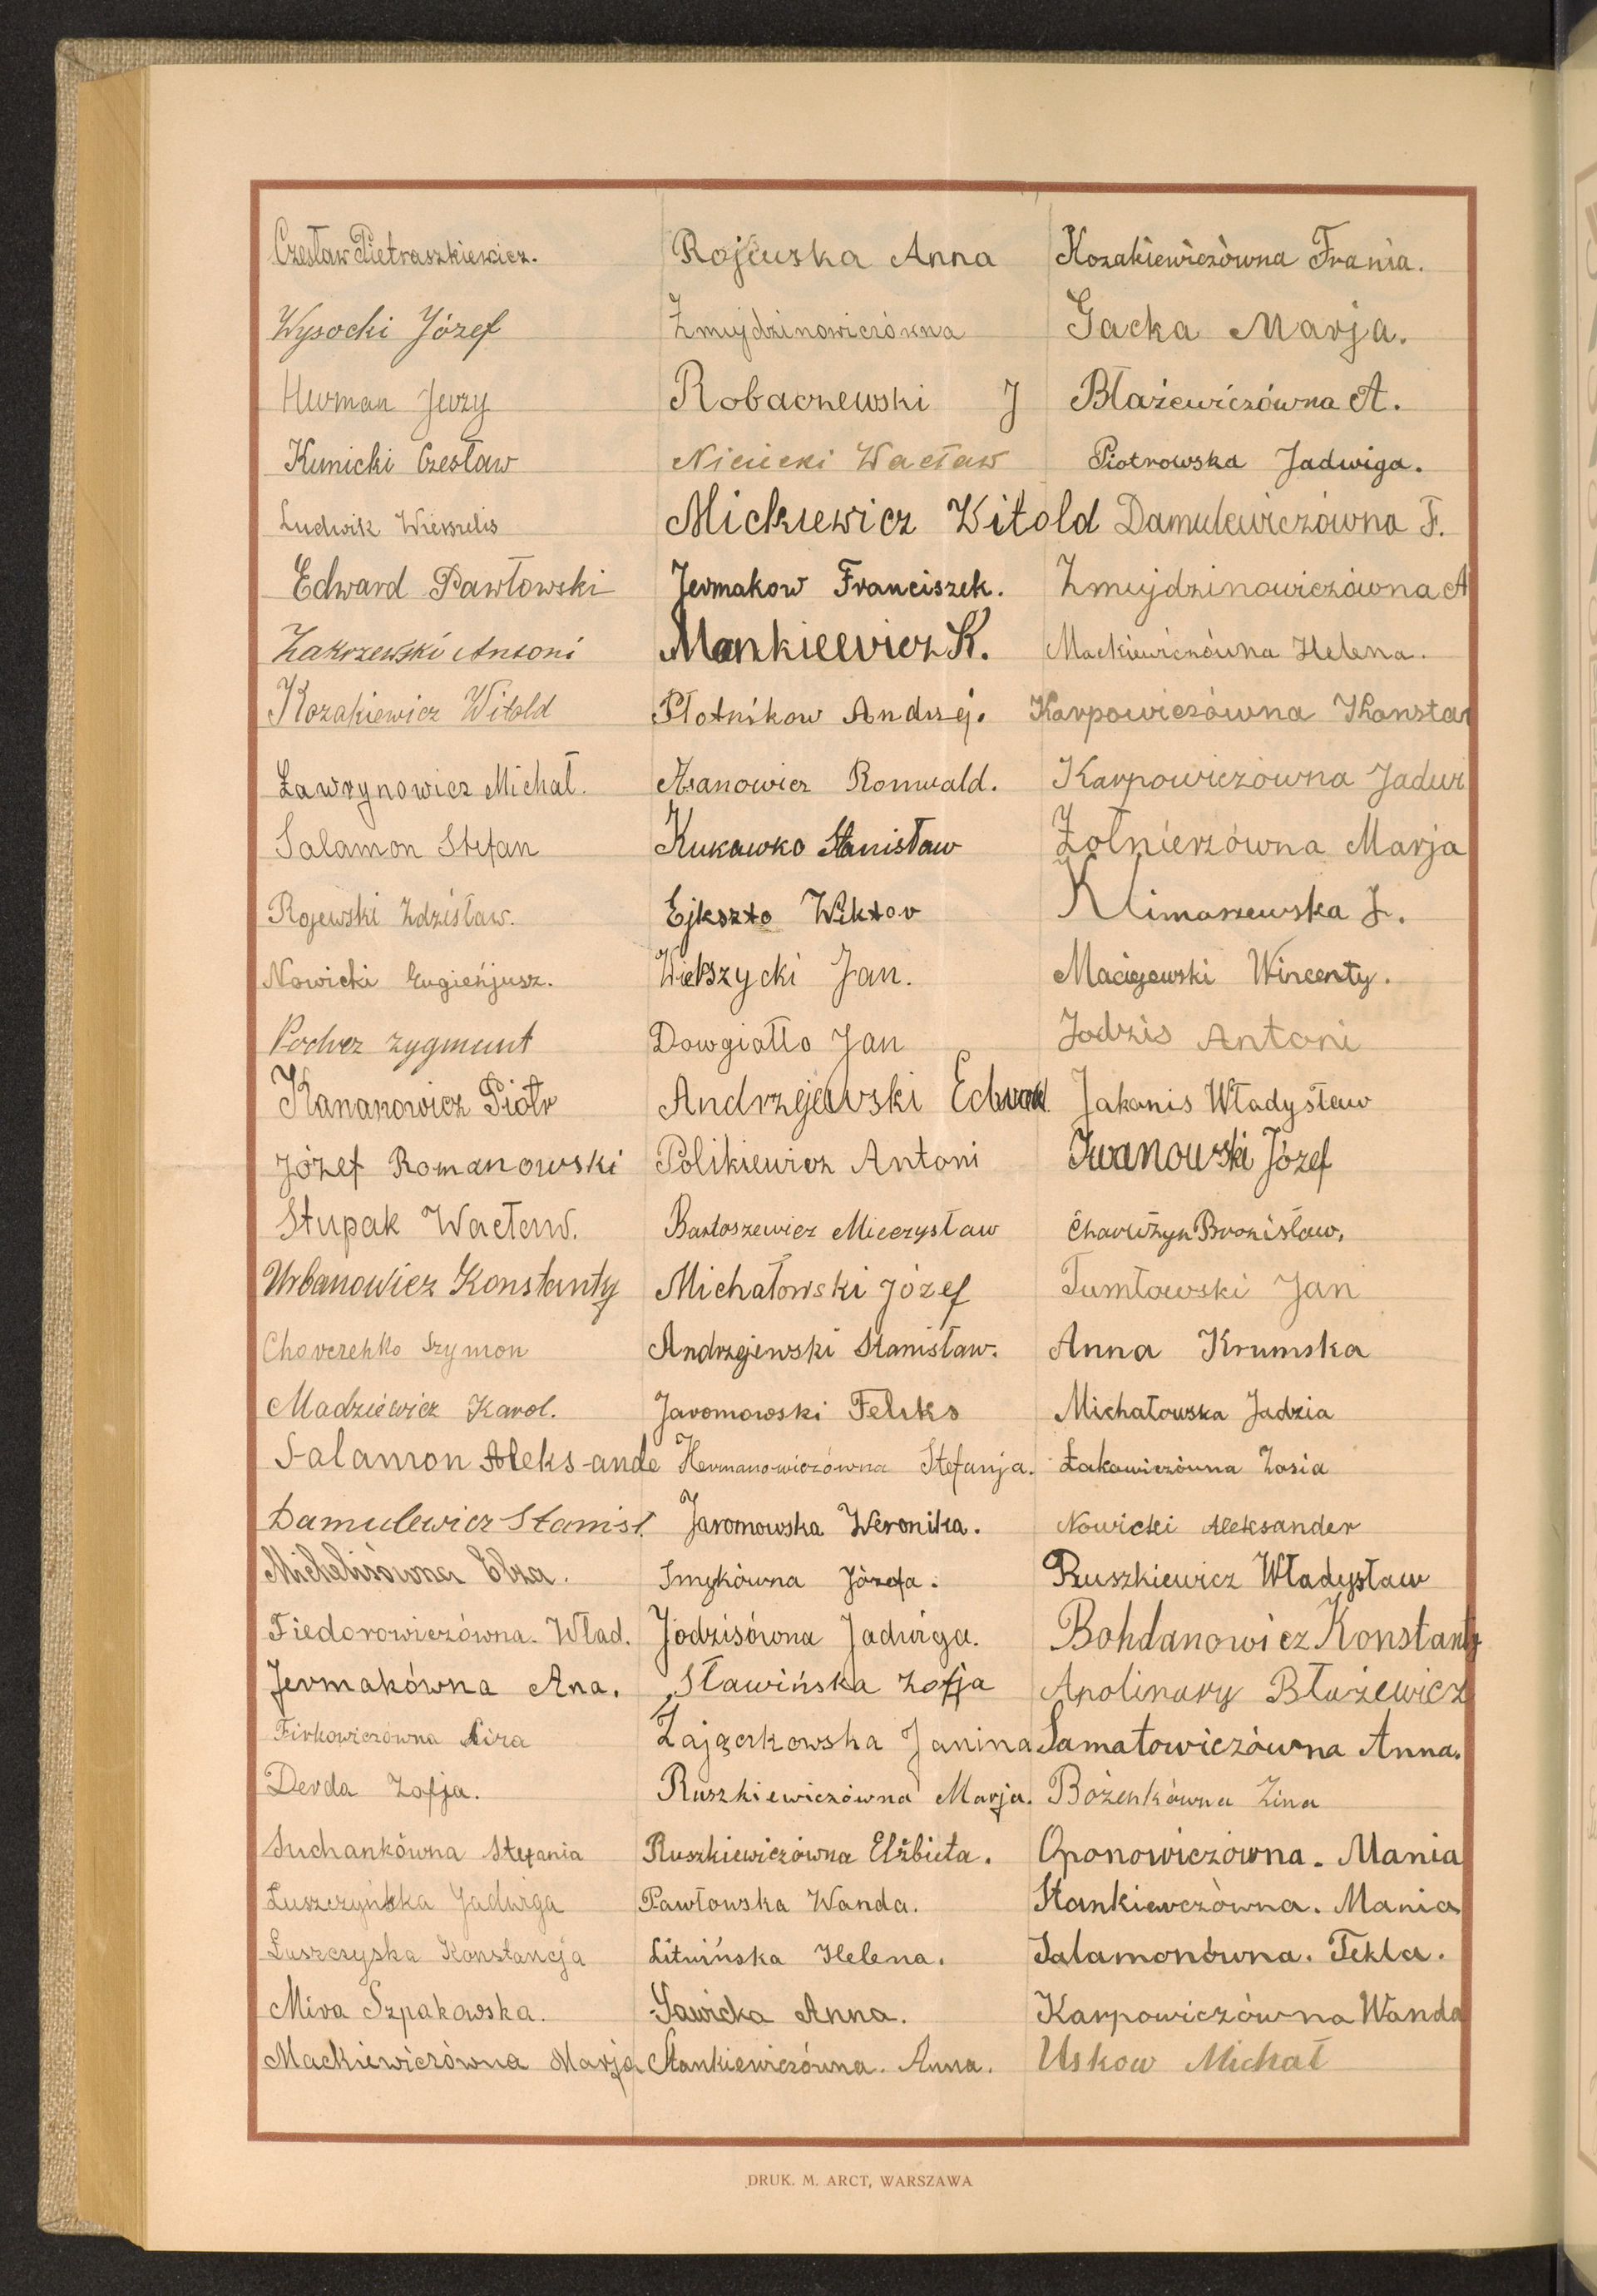 Czesław Pietraszkiewicz.
Wysocki Józef
Herman Jerzy
Kunicki Czesław
Ludwik
Edward Pawłowski
Zakrzewski Antoni
Kozakiewicz Witold
Ławrynowicz Michał.
Salamon Stefan
Rojewski Zdzisław.
Nowicki Eugieńjusz.
Zygmunt
Kananowicz Piotr
Józef Romanowski
Stupak Wacław.
Urbanowicz Konstanty
Szymon
Madziewicz Karol.
Salamon Aleksande
Damulewicz Stanisł.
Michelisówna Elza.
Fiedorowiczówna. Wład.
Jermakówna Ana.
Firkowiczówna Lira
Derda Zofja.
Suchankówna Stefania
Łuszczyńska Jadwiga
Łuszczyska Konstancja
Mira Szpakowska.
Mackiewiczówna Marja
Rojewska Anna
Żmujdzinowiczówna
Robaczewski J
Niciecki Wacław
Mickiewicz Witold
Jermakow Franciszek.
Mankiewicz K.
Płotnikow Andrzej.
Asanowicz Romuald.
Kukawko Stanisław
Ejkszto Wiktor
Wiekszycki Jan.
Dowgiałło Jan
Andrzejewski Edward
Polikiewicz Antoni
Bartoszewicz Mieczysław
Michałowski Józef
Andrzejewski Stanisław.
Jaromowski Feliks
Hermanowiczówna Stefanja.
Jaromowska Weronika.
Smykówna Józefa.
Jodzisówna Jadwiga.
Sławińska Zofja
Zajączkowska Janina
Ruszkiewiczówna Marja.
Ruszkiewiczówna Elżbieta.
Pawłowska Wanda.
Litwińska Helena.
Sawicka Anna.
Stankiewiczówna. Anna.
Kozakiewiczówna Frania.
Gacka Marja.
Błażewiczówna A.
Piotrowska Jadwiga.
Damulewiczówna F.
Żmujdzinowiczówna A
Mackiewiczówna Helena.
Karpowiczówna Konstan
Karpowiczówna Jadwi
Żołnierzówna Marja
Klimaszewska J.
Maciejewski Wincenty.
Jodzis Antoni
Jakanis Władysław
Iwanowski Józef
Bronisław.
Tumłowski Jan
Anna Krumska
Michałowska Jadzia
Łakowiczówna Zosia
Nowicki Aleksander
Ruszkiewicz Władysław
Bohdanowicz Konstanty
Apolinary Błażewicz
Samatowiczówna Anna.
Bożenkówna Zina
Oponowiczówna. Mania
Stankiewczówna. Mania
Salamonówna. Tekla.
Karpowiczówna Wanda
Uskow Michał
DRUK. M. ARCT, WARSZAWA